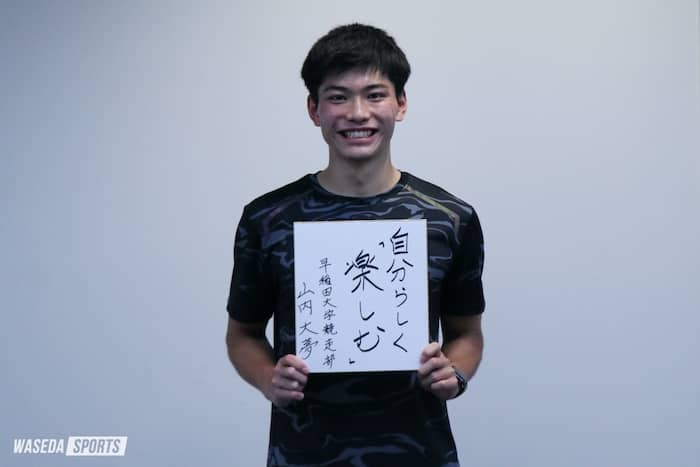 「自分らしく
楽しむ」
早稲田大学競走部
山内大夢
WASEDA SPORTS